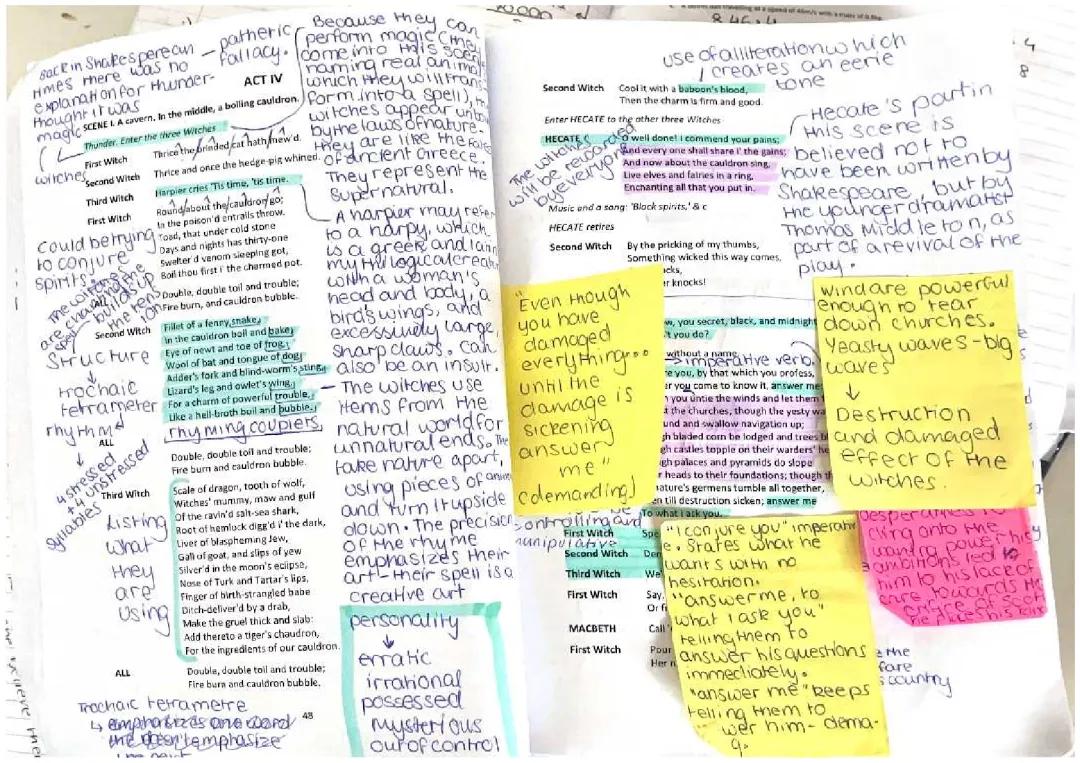 Back in Shakesperean
times there was no
explanation for thunder-
thought it was
magic
— pathetic
fallacy.
ACT IV
SCENE I. A cavern. In the middle, a boiling cauldron.
Thunder. Enter the three Witches
First Witch Thrice the brinded cat hath mew'd.
witches
Second Witch Thrice and once the hedge-pig whined.
Third Witch Harpier cries 'Tis time, 'tis time.
First Witch Round about the cauldron go;
In the poison'd entrails throw.
Toad, that under cold stone
Days and nights has thirty-one
Swelter'd venom sleeping got,
Boil thou first i' the charmed pot.
Could be trying
to conjure
spirits.
The witches
are chanting the
spell building
build up
the tension
ALL Double, double toil and trouble;
Fire burn, and cauldron bubble.
Second Witch Fillet of a fenny snake,
In the cauldron boil and bake;
Eye of newt and toe of frog,
Wool of bat and tongue of dog,
Adder's fork and blind-worm's sting,
Lizard's leg and owlet's wing,
For a charm of powerful trouble,
Like a hell-broth boil and bubble.
rhyming couplets
Structure
↓
trochaic
tetrameter
rhythm
↓
4 stressed
+ 4 unstressed
syllables
ALL Double, double toil and trouble;
Fire burn and cauldron bubble.
Third Witch Scale of dragon, tooth of wolf,
Witches' mummy, maw and gulf
Of the ravin'd salt-sea shark,
Root of hemlock digg'd i' the dark,
Liver of blaspheming Jew,
Gall of goat, and slips of yew
Silver'd in the moon's eclipse,
Nose of Turk and Tartar's lips,
Finger of birth-strangled babe
Ditch-deliver'd by a drab,
Make the gruel thick and slab:
Add thereto a tiger's chaudron,
For the ingredients of our cauldron.
Listing
what
they
are
using
ALL Double, double toil and trouble;
Fire burn and cauldron bubble.
Trochaic tetrametre
↳ emphasizes one word
48
Because they can
perform magic (they
come into this scene
naming real animals
which they will trans-
form into a spell), the
witches appear unbound
by the laws of nature-
they are like the Fates
of ancient Greece.
They represent the
supernatural.
A harpier may refer
to a harpy, which
is a greek and latin
mythilogical creature
with a woman's
head and body, a
bird's wings, and
excessively large,
sharp claws. Can
also be an insult.
— The witches use
items from the
natural world for
unnatural ends. The
take nature apart,
using pieces of animals
and turn it upside
down. The precision
of the rhyme
emphasizes their
art - their spell is a
creative art
personality
↓
erratic
irrational
possessed
mysterious
out of control
use of alliteration which
creates an eerie
tone
Second Witch Cool it with a baboon's blood,
Then the charm is firm and good.
Enter HECATE to the other three Witches
HECATE O well done! I commend your pains;
And every one shall share i' the gains;
And now about the cauldron sing,
Live elves and fairies in a ring,
Enchanting all that you put in.
The witches
will be rewarded
by everyone
Music and a song: 'Black spirits,' & c
HECATE retires
Second Witch By the pricking of my thumbs,
Something wicked this way comes,
knocks!
Hecate's part in
this scene is
believed not to
have been written by
Shakespeare, but by
the younger dramatist
Thomas Middleton, as
part of a revival of the
play.
"Even though
you have
damaged
everything...
until the
damage is
sickening
answer
me"
(demanding)
you secret, black, and midnight
you do?
without a name.
imperative verb.
you, by that which you profess,
you come to know it, answer me
you untie the winds and let them
the churches, though the yesty
and swallow navigation up;
bladed corn be lodged and trees
castles topple on their warders'
palaces and pyramids do slope
heads to their foundations; though
nature's germens tumble all together,
till destruction sicken; answer me
To what I ask you.
Wind are powerful
enough to tear
down churches.
Yeasty waves - big
waves
↓
Destruction
and damaged
effect of the
witches.
controlling and
manipulative
First Witch
Second Witch
Third Witch
First Witch Say,
MACBETH Call
First Witch Pour
"I conjure you" imperative
States what he
wants with no
hesitation.
"answer me, to
what I ask you"
telling them to
answer his questions
immediately.
"answer me" keeps
telling them to
cling onto the
power, his
ambitions led to
him to his lack of
care towards the
country